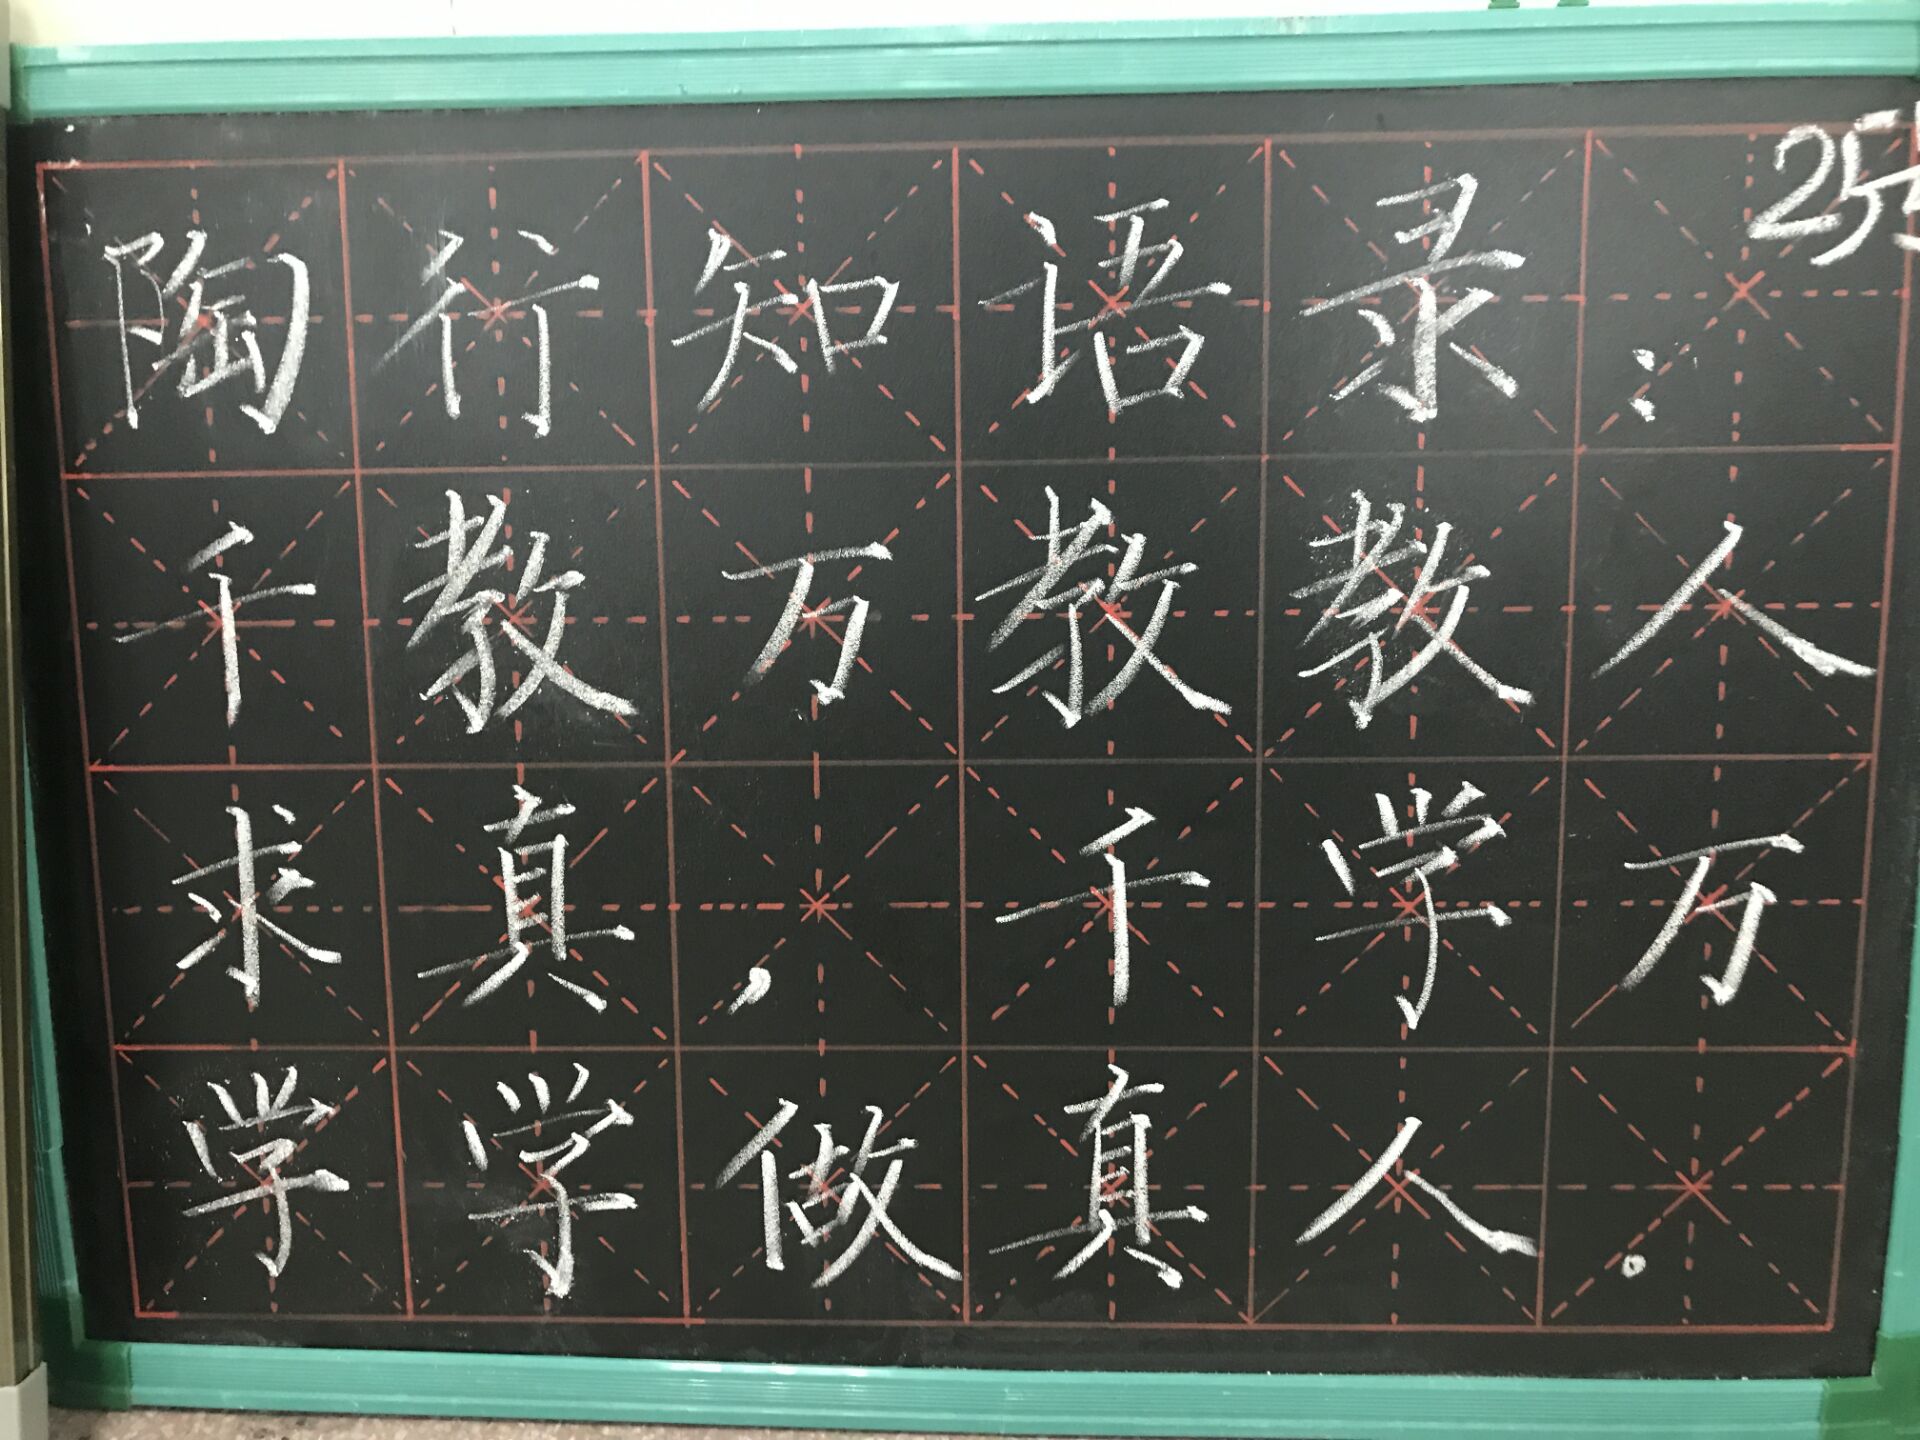 陶行知语录：
千教万教教人
求真，千学万
学学做真人。